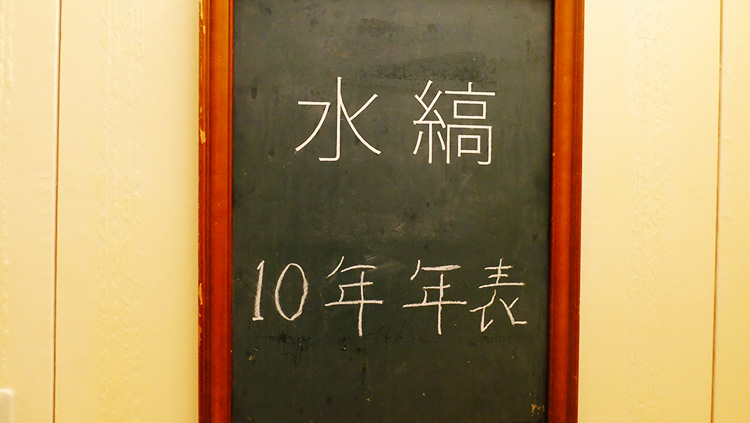 水縞
10年年表